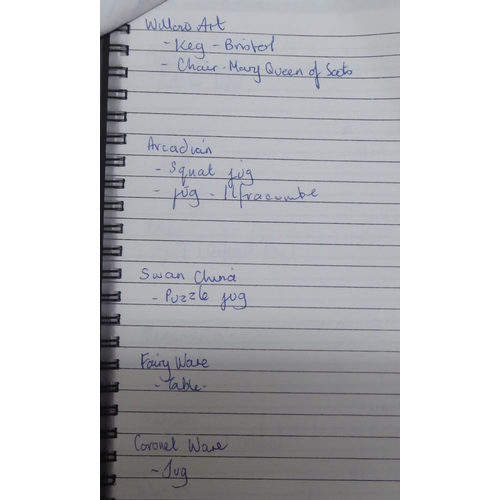 Willow Art
- Keg - Bristol
- Chair - Mary Queen of Scots
Arcadian
- Squat jug
- jug - Ilfracombe
Swan China
- Puzzle jug
Fairy Ware
- Table
Coronet Ware
- Jug